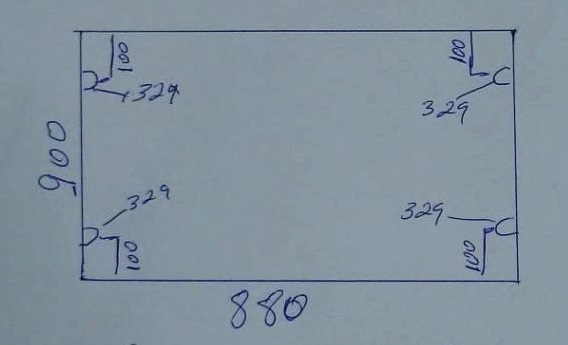 100
100
329
329
900
329
329
100
100
880